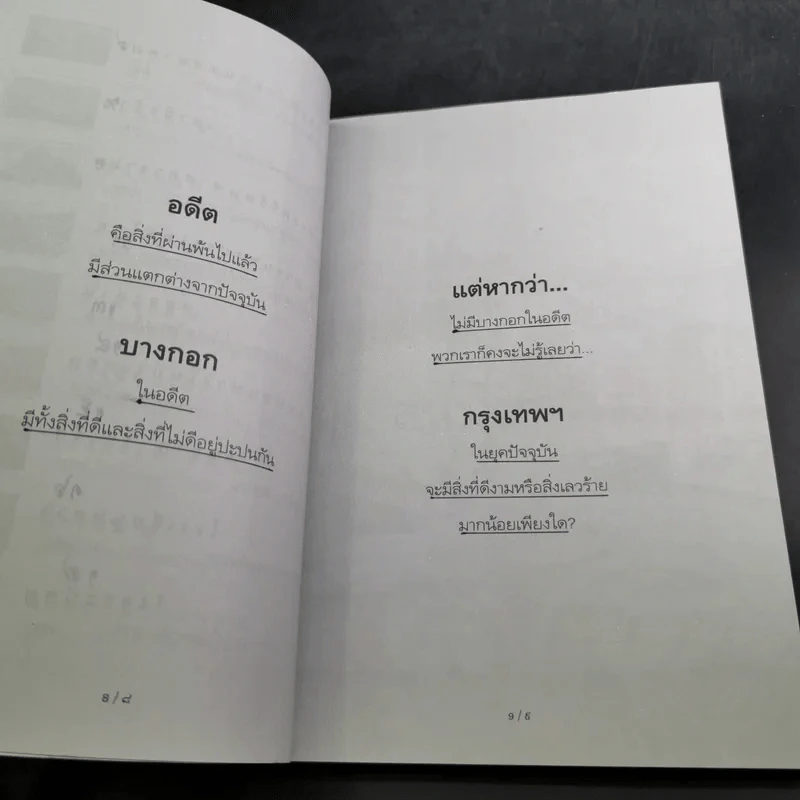 อดีต
คือสิ่งที่ผ่านพ้นไปแล้ว
มีส่วนแตกต่างจากปัจจุบัน
บางกอก
ในอดีต
มีทั้งสิ่งที่ดีและสิ่งที่ไม่ดีอยู่ปะปนกัน
8 / ๘
แต่หากว่า...
ไม่มีบางกอกในอดีต
พวกเราก็คงจะไม่รู้เลยว่า...
กรุงเทพฯ
ในยุคปัจจุบัน
จะมีสิ่งที่ดีงามหรือสิ่งเลวร้าย
มากน้อยเพียงใด?
9 / ๙